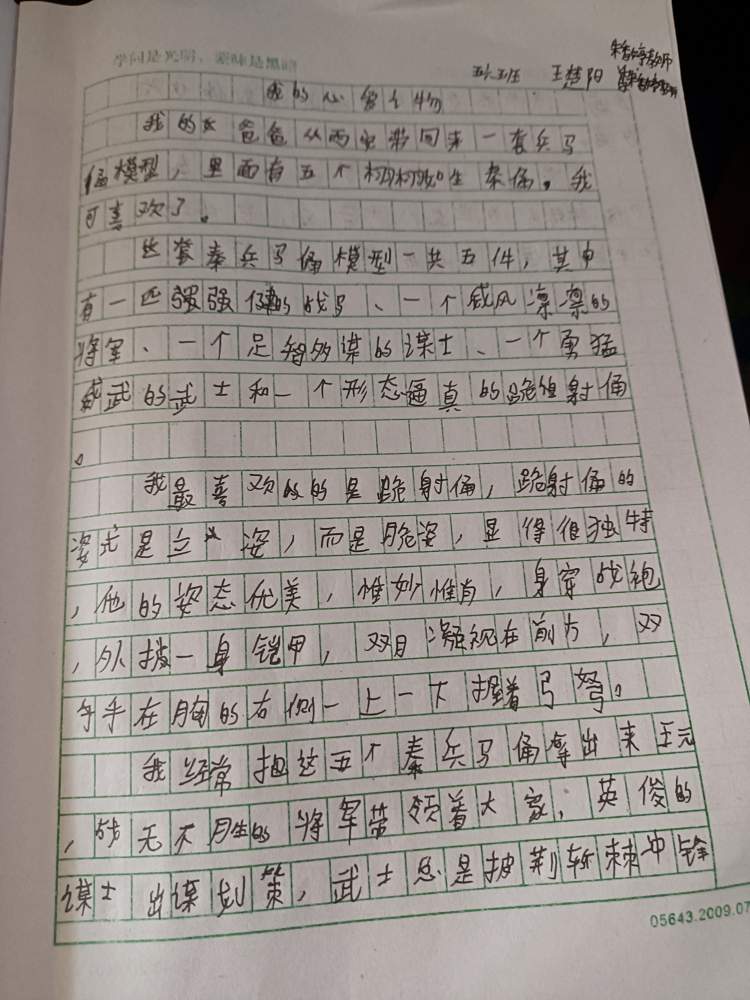 学问是光明，愚昧是黑暗
五六班 王楚阳
我的心爱之物
我的爸爸从西安带回来一套兵马
俑模型，里面有五个栩栩如生秦俑。我
可喜欢了。
这套秦兵马俑模型一共五件，其中
有一匹强强健的战马、一个威风凛凛的
将军、一个足智多谋的谋士、一个勇猛
威武的武士和一个形态逼真的跪姿射俑
。
我最喜欢的是跪射俑，跪射俑的
姿式是立姿，而是跪姿，显得很独特
，他的姿态优美，惟妙惟肖，身穿战袍
，外披一身铠甲，双目凝视在前方，双
手在胸的右侧一上一下握着弓弩。
我经常把这五个秦兵马俑拿出来王元
，战无不胜的将军带领着大家；英俊的
谋士出谋划策，武士总是披荆斩棘冲锋
05643.2009.07